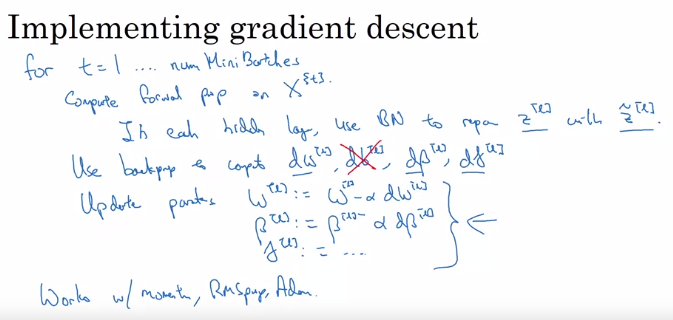 Implementing gradient descent
for t = 1 .... num MiniBatches
Compute forward prop on X^{t}.
In each hidden layer, use BN to repace z^[l] with z̃^[l].
Use backprop to compute dw^[l], db^[l], dβ^[l], dγ^[l]
Update parates w^[l] := w^[l] - α dw^[l]
β^[l] := β^[l] - α dβ^[l]
γ^[l] := ...
Works w/ momentum, RMSprop, Adam.